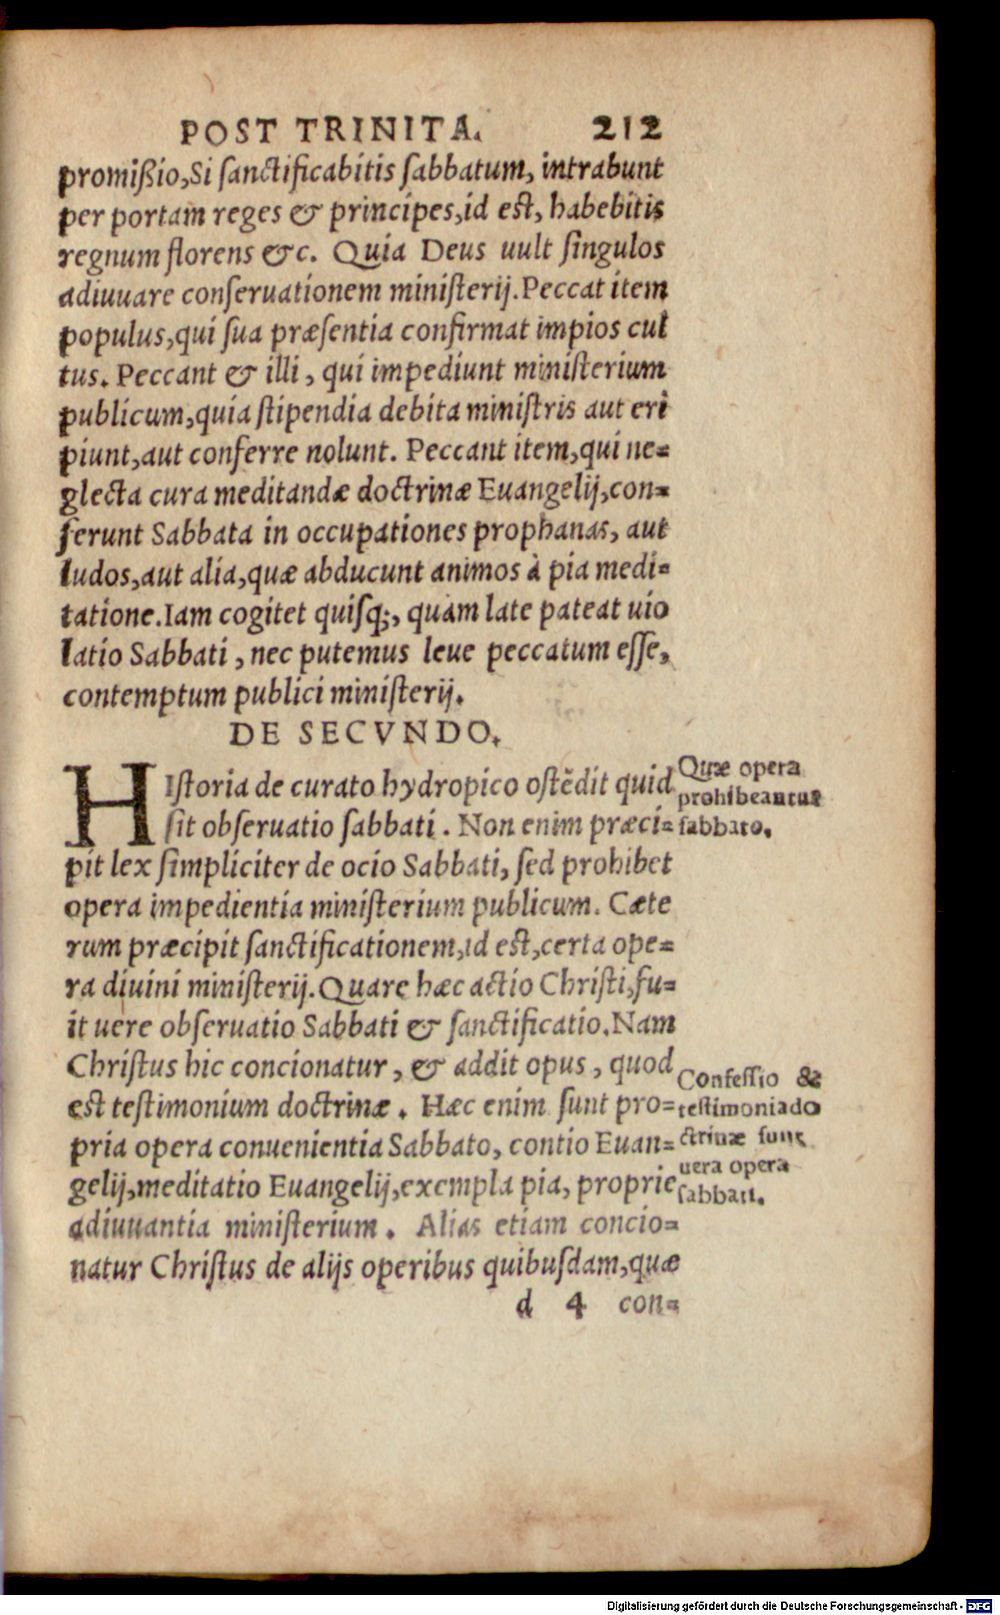 POST TRINITA. 212
promißio, Si sanctificabitis sabbatum, intrabunt
per portam reges & principes, id est, habebitis
regnum florens &c. Quia Deus uult singulos
adiuuare conseruationem ministerij. Peccat item
populus, qui sua præsentia confirmat impios cul
tus. Peccant & illi, qui impediunt ministerium
publicum, quia stipendia debita ministris aut eri
piunt, aut conferre nolunt. Peccant item, qui ne=
glecta cura meditandæ doctrinæ Euangelij, con=
ferunt Sabbata in occupationes prophanas, aut
ludos, aut alia, quæ abducunt animos à pia medi=
tatione. Iam cogitet quisq;, quàm late pateat uio
latio Sabbati, nec putemus leue peccatum esse,
contemptum publici ministerij.
DE SECVNDO.
HIstoria de curato hydropico ostẽdit quid
sit obseruatio sabbati. Non enim præci=
pit lex simpliciter de ocio Sabbati, sed prohibet
opera impedientia ministerium publicum. Cæte
rum præcipit sanctificationem, id est, certa ope=
ra diuini ministerij. Quare hæc actio Christi, fu=
it uere obseruatio Sabbati & sanctificatio. Nam
Christus hic concionatur, & addit opus, quod
est testimonium doctrinæ. Hæc enim sunt pro=
pria opera conuenientia Sabbato, contio Euan=
gelij, meditatio Euangelij, exempla pia, proprie
adiuuantia ministerium. Alias etiam concio=
natur Christus de alijs operibus quibusdam, quæ
d 4 con=
Quæ opera
prohibeantur
sabbato.
Confessio &
testimonia do
ctrinæ sunt
uera opera
sabbati.
Digitalisierung gefördert durch die Deutsche Forschungsgemeinschaft - DFG